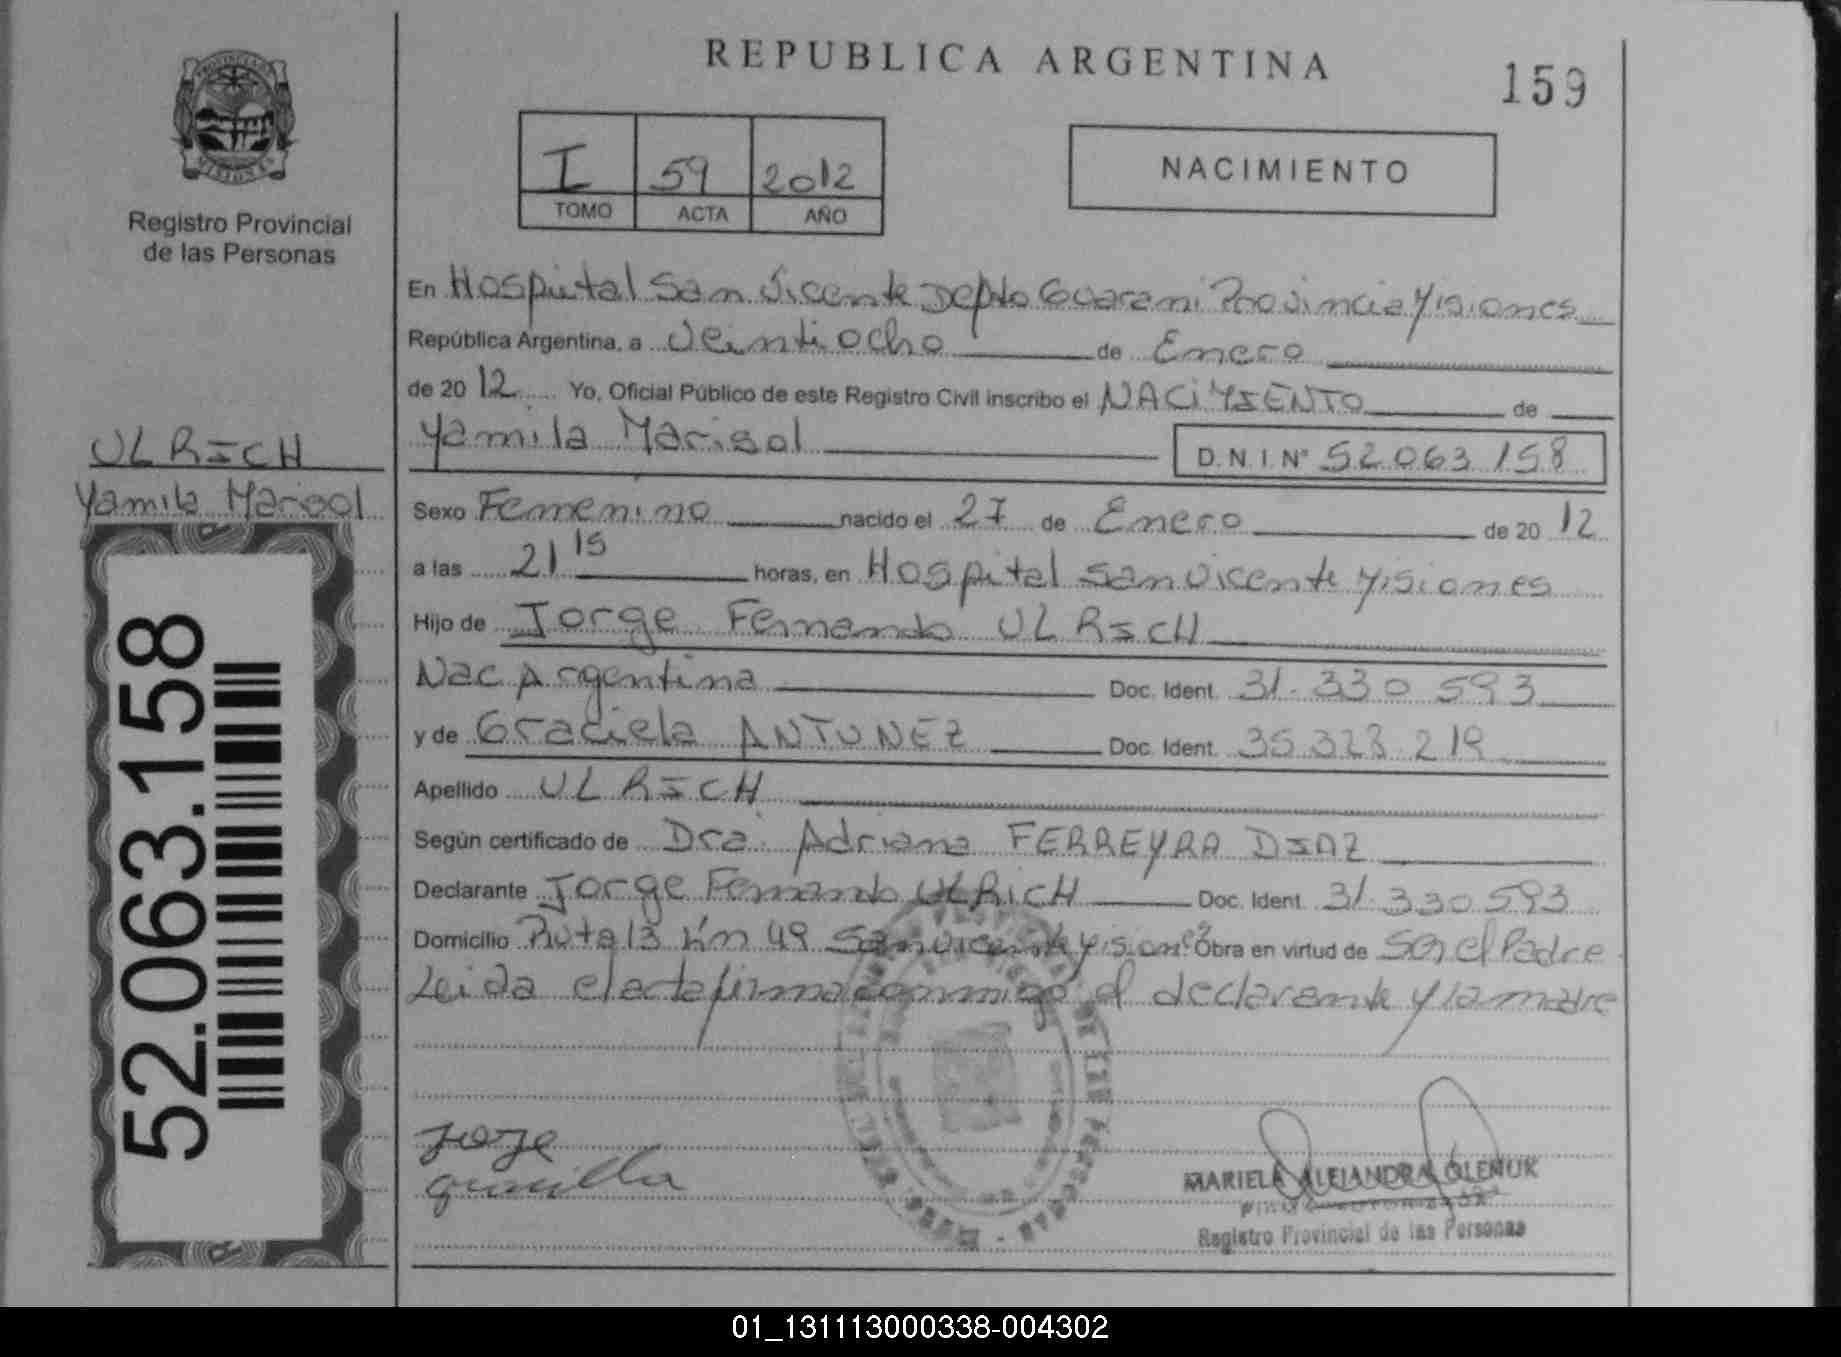 REPUBLICA ARGENTINA
159
PROVINCIA DE
MISIONES
Registro Provincial
de las Personas
I 59 2012
TOMO ACTA AÑO
NACIMIENTO
En Hospital San Vicente Depto Guarani Provincia Misiones
República Argentina, a Veintiocho de Enero
de 2012 Yo, Oficial Público de este Registro Civil inscribo el NACIMIENTO de
Yamila Marisol D.N.I.N° 52.063.158
ULRICH
Yamila Marisol
Sexo Femenino nacido el 27 de Enero de 2012
a las 21 15 horas, en Hospital San Vicente Misiones
Hijo de Jorge Fernando ULRICH
Nac Argentina Doc. Ident. 31.330.593
y de Graciela ANTUNEZ Doc. Ident. 35.328.219
Apellido ULRICH
Según certificado de Dra. Adriana FERREYRA DIAZ
Declarante Jorge Fernando ULRICH Doc. Ident. 31.330.593
Domicilio Ruta 13 km 49 San Vicente Misiones Obra en virtud de ser el Padre
Leida el acta firma conmigo el declarante y la madre
52.063.158
Jorge
MARIELA ALEJANDRA OLENIUK
Registro Provincial de las Personas
01_131113000338-004302